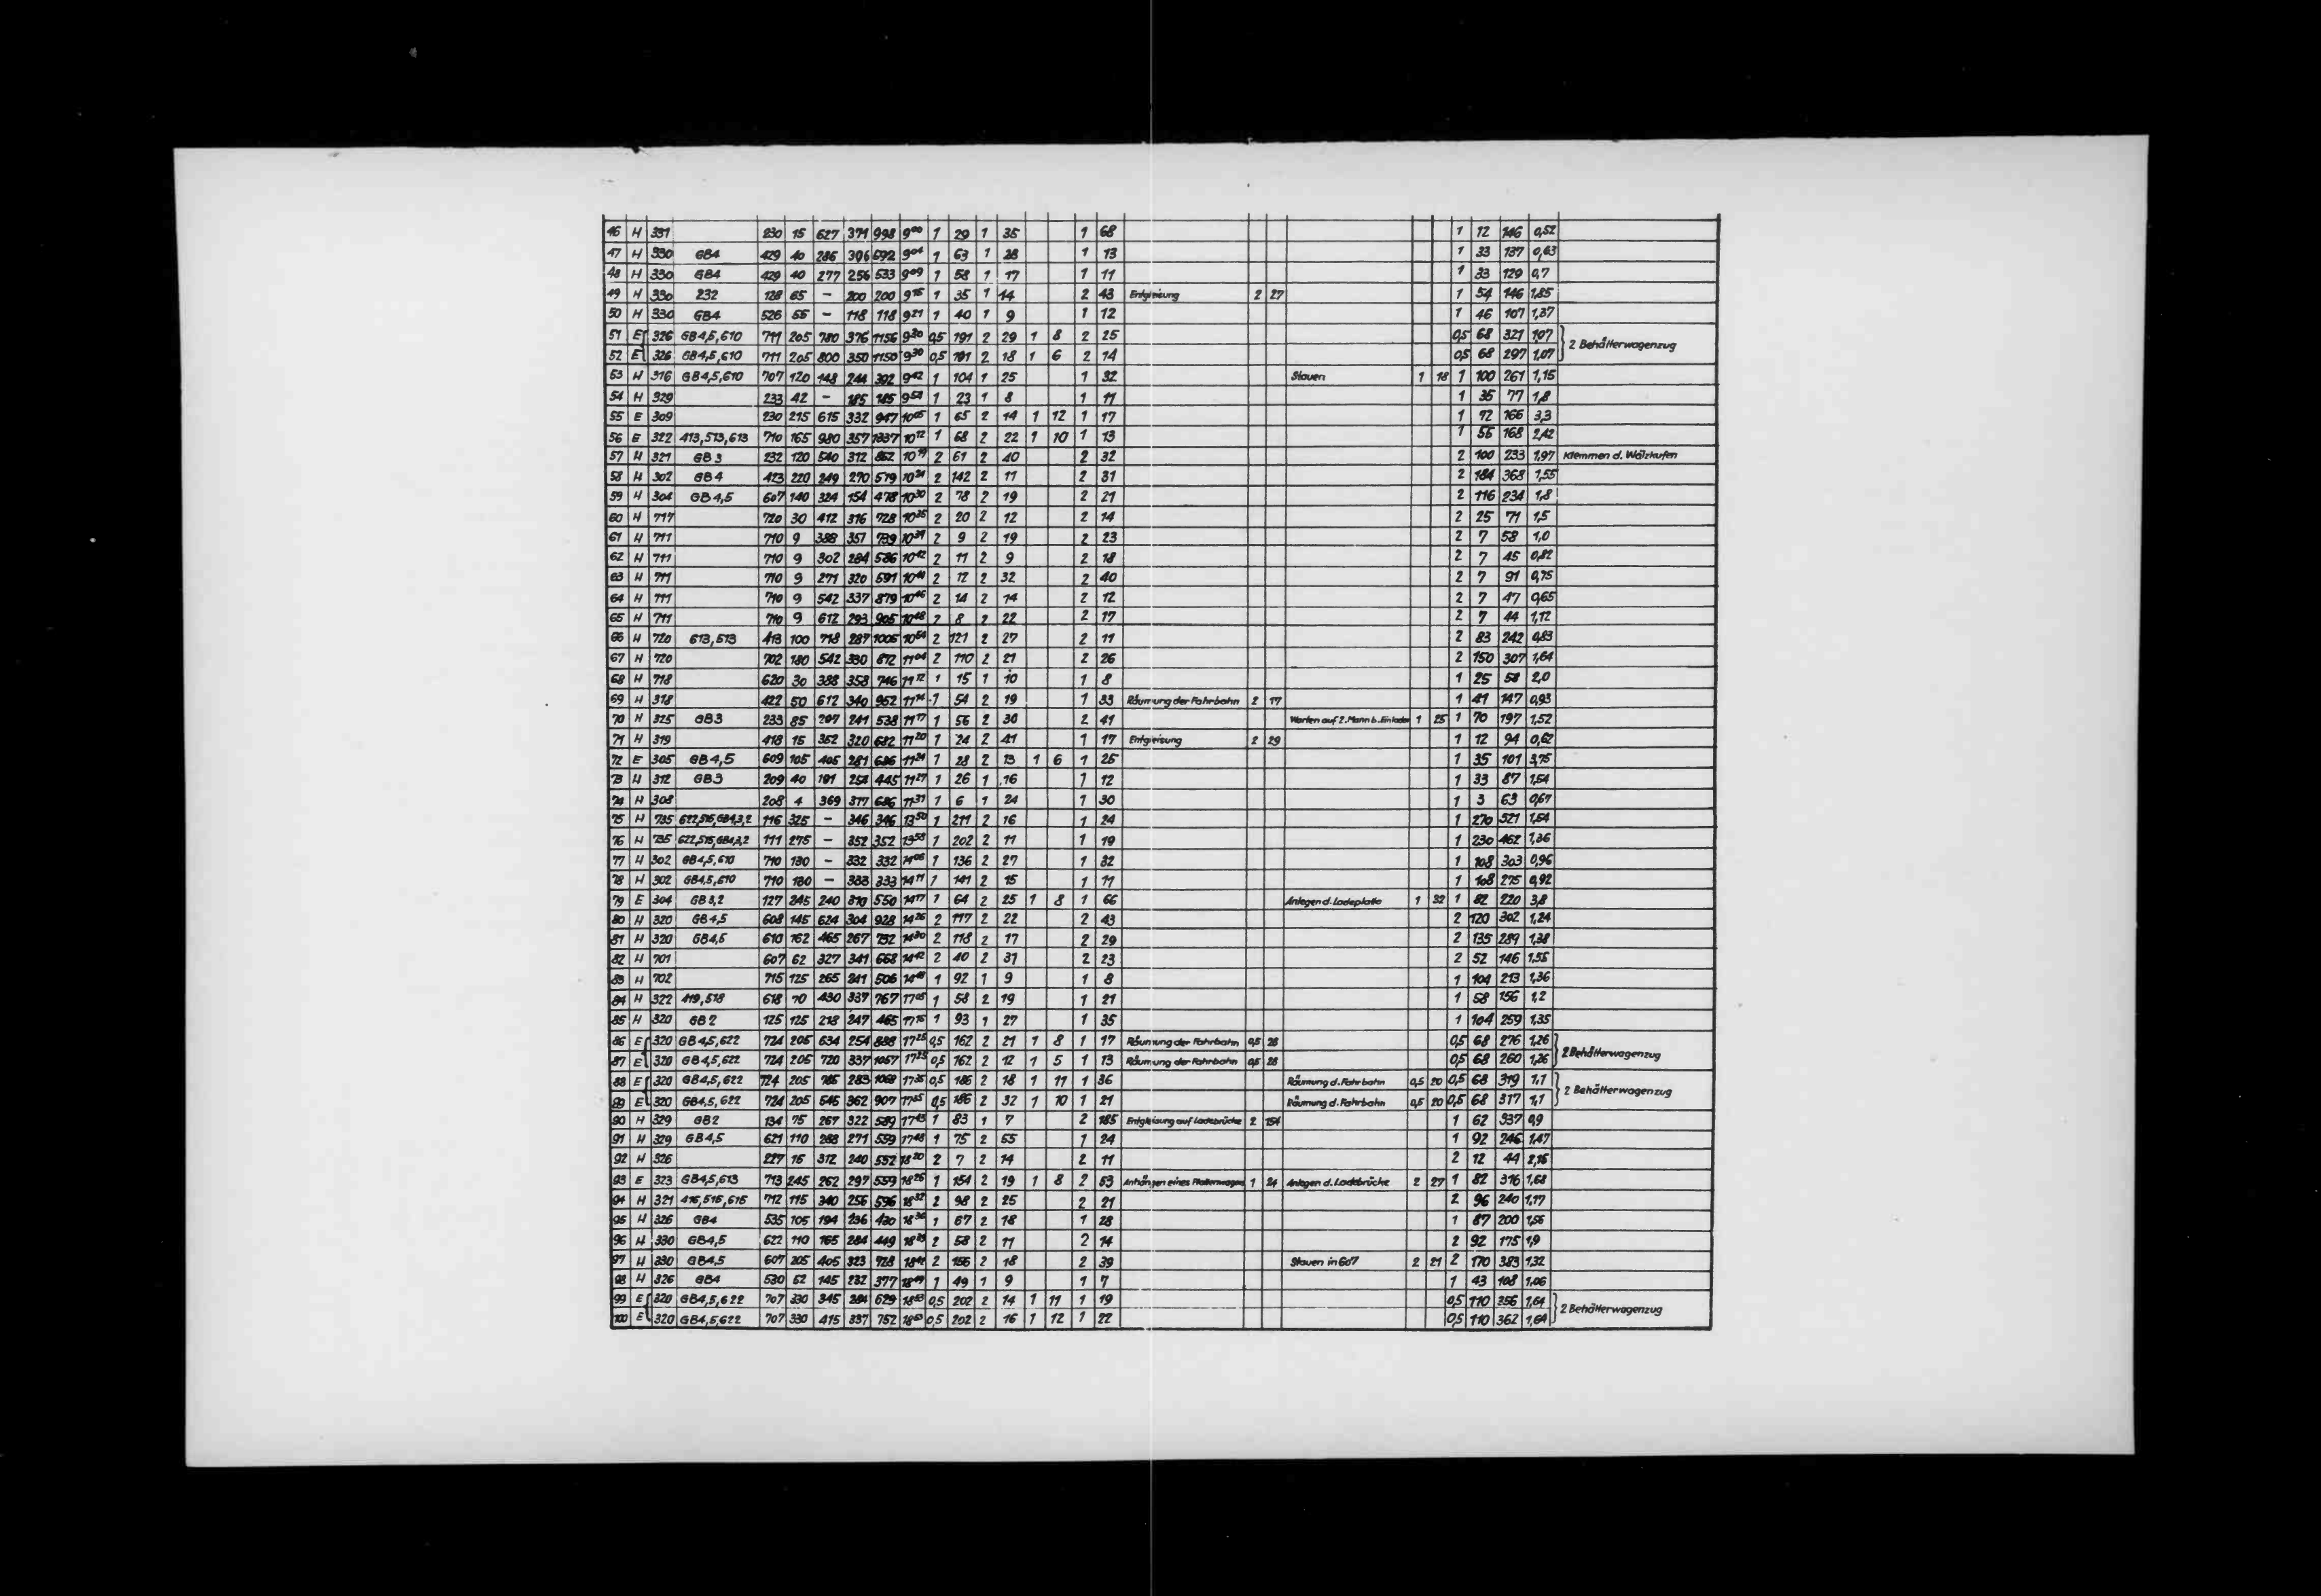 46 H 331 230 15 627 371 998 9⁰⁰ 1 29 1 35 1 68 1 12 146 0,52
47 H 330 GB4 429 40 286 306 592 9⁰⁴ 1 63 1 28 1 13 1 33 137 0,63
48 H 330 GB4 429 40 277 256 533 9⁰⁹ 1 58 1 17 1 11 1 33 129 0,7
49 H 330 232 128 65 – 200 200 9¹⁵ 1 35 1 14 2 43 Entgleisung 2 27 1 54 146 1,85
50 H 330 GB4 526 55 – 118 118 9²¹ 1 40 1 9 1 12 1 46 107 1,37
51 E 326 GB4,5,610 711 205 780 376 1156 9³⁰ 0,5 191 2 29 1 8 2 25 0,5 68 321 1,07 2 Behälterwagenzug
52 E 326 GB4,5,610 711 205 800 350 1150 9³⁰ 0,5 191 2 18 1 6 2 14 0,5 68 297 1,07
53 H 316 GB4,5,610 707 120 148 244 392 9⁴² 1 104 1 25 1 32 Stauen 1 18 1 100 261 1,15
54 H 329 233 42 – 185 185 9⁵⁴ 1 23 1 8 1 11 1 35 77 1,8
55 E 309 230 215 615 332 947 10⁰⁵ 1 65 2 14 1 12 1 17 1 72 166 3,3
56 E 322 413,513,613 710 165 980 357 1337 10¹² 1 68 2 22 1 10 1 13 1 55 168 2,42
57 H 321 GB3 232 120 540 312 852 10¹⁹ 2 61 2 40 2 32 2 100 233 1,97 Klemmen d. Wälzkufen
58 H 302 GB4 423 220 249 270 519 10²⁴ 2 142 2 11 2 31 2 184 368 1,55
59 H 304 GB4,5 607 140 324 154 478 10³⁰ 2 78 2 19 2 21 2 116 234 1,8
60 H 717 720 30 412 316 728 10³⁵ 2 20 2 12 2 14 2 25 71 1,5
61 H 711 710 9 388 357 739 10³⁹ 2 9 2 19 2 23 2 7 58 1,0
62 H 711 710 9 302 284 586 10⁴² 2 11 2 9 2 18 2 7 45 0,82
63 H 711 710 9 271 320 591 10⁴⁴ 2 12 2 32 2 40 2 7 91 0,75
64 H 711 710 9 542 337 879 10⁴⁶ 2 14 2 14 2 12 2 7 47 0,65
65 H 711 710 9 612 293 905 10⁴⁸ 2 8 2 22 2 17 2 7 44 1,12
66 H 720 613,513 413 100 718 287 1005 10⁵⁴ 2 121 2 27 2 11 2 83 242 0,83
67 H 720 702 180 542 330 872 11⁰⁴ 2 110 2 21 2 26 2 150 307 1,64
68 H 718 620 30 388 358 746 11¹² 1 15 1 10 1 8 1 25 58 2,0
69 H 318 422 50 612 340 952 11¹⁴ 1 54 2 19 1 33 Räumung der Fahrbahn 2 17 1 41 147 0,93
70 H 325 GB3 233 85 297 241 538 11¹⁷ 1 56 2 30 2 41 Warten auf 2. Mann b. Einladen 1 25 1 70 197 1,52
71 H 319 418 15 362 320 682 11²⁰ 1 24 2 41 1 17 Entgleisung 2 29 1 12 94 0,62
72 E 305 GB4,5 609 105 405 281 686 11²⁴ 1 28 2 13 1 6 1 25 1 35 101 3,75
73 H 312 GB3 209 40 191 254 445 11²⁷ 1 26 1 16 1 12 1 33 87 1,54
74 H 308 208 4 369 317 686 11³¹ 1 6 1 24 1 30 1 3 63 0,67
75 H 735 622,515,GB4,3,2 116 325 – 346 346 13⁵⁰ 1 211 2 16 1 24 1 270 521 1,54
76 H 735 622,515,GB4,3,2 111 275 – 352 352 13⁵⁸ 1 202 2 11 1 19 1 230 462 1,36
77 H 302 GB4,5,610 710 130 – 332 332 14⁰⁶ 1 136 2 27 1 32 1 108 303 0,96
78 H 302 GB4,5,610 710 130 – 333 333 14¹¹ 1 141 2 15 1 11 1 108 275 0,92
79 E 304 GB3,2 127 245 240 310 550 14¹⁷ 1 64 2 25 1 8 1 66 Anlegen d. Ladeplatte 1 32 1 82 220 3,8
80 H 320 GB4,5 608 145 624 304 928 14²⁶ 2 117 2 22 2 43 2 120 302 1,24
81 H 320 GB4,5 610 162 465 267 732 14³⁰ 2 118 2 17 2 29 2 135 289 1,38
82 H 701 607 62 327 341 668 14⁴² 2 40 2 31 2 23 2 52 146 1,55
83 H 702 715 125 265 241 506 14⁴⁸ 1 92 1 9 1 8 1 104 213 1,36
84 H 322 419,518 618 70 430 337 767 17⁰⁵ 1 58 2 19 1 21 1 58 156 1,2
85 H 320 GB2 125 125 218 247 465 17¹⁵ 1 93 1 27 1 35 1 104 259 1,35
86 E 320 GB4,5,622 724 205 634 254 888 17²⁵ 0,5 162 2 21 1 8 1 17 Räumung der Fahrbahn 0,5 28 0,5 68 276 1,26 2 Behälterwagenzug
87 E 320 GB4,5,622 724 205 720 337 1057 17²⁵ 0,5 162 2 12 1 5 1 13 Räumung der Fahrbahn 0,5 28 0,5 68 260 1,26
88 E 320 GB4,5,622 724 205 785 283 1068 17³⁵ 0,5 186 2 18 1 11 1 36 Räumung d. Fahrbahn 0,5 20 0,5 68 319 1,1 2 Behälterwagenzug
89 E 320 GB4,5,622 724 205 545 362 907 17³⁵ 0,5 186 2 32 1 10 1 21 Räumung d. Fahrbahn 0,5 20 0,5 68 317 1,1
90 H 329 GB2 134 75 267 322 589 17⁴³ 1 83 1 7 2 185 Entgleisung auf Ladebrücke 2 154 1 62 337 0,9
91 H 329 GB4,5 621 110 288 271 559 17⁴⁸ 1 75 2 55 1 24 1 92 246 1,47
92 H 326 227 15 312 240 552 18²⁰ 2 7 2 14 2 11 2 12 44 2,15
93 E 323 GB4,5,613 713 245 262 297 559 18²⁶ 1 154 2 19 1 8 2 53 Anhängen eines Plattenwagens 1 24 Anlegen d. Ladebrücke 2 27 1 82 316 1,68
94 H 321 415,515,615 712 115 340 256 596 18³² 2 98 2 25 2 21 2 96 240 1,17
95 H 326 GB4 535 105 194 236 430 18³⁶ 1 67 2 18 1 28 1 87 200 1,56
96 H 330 GB4,5 622 110 165 284 449 18³⁹ 2 58 2 11 2 14 2 92 175 1,9
97 H 330 GB4,5 607 205 405 323 728 18⁴² 2 156 2 18 2 39 Stauen in 607 2 21 2 170 383 1,32
98 H 326 GB4 530 52 145 232 377 18⁴⁹ 1 49 1 9 1 7 1 43 108 1,06
99 E 320 GB4,5,622 707 330 345 284 629 18⁵³ 0,5 202 2 14 1 11 1 19 0,5 110 356 1,64 2 Behälterwagenzug
100 E 320 GB4,5,622 707 330 415 337 752 18⁵³ 0,5 202 2 16 1 12 1 22 0,5 110 362 1,64